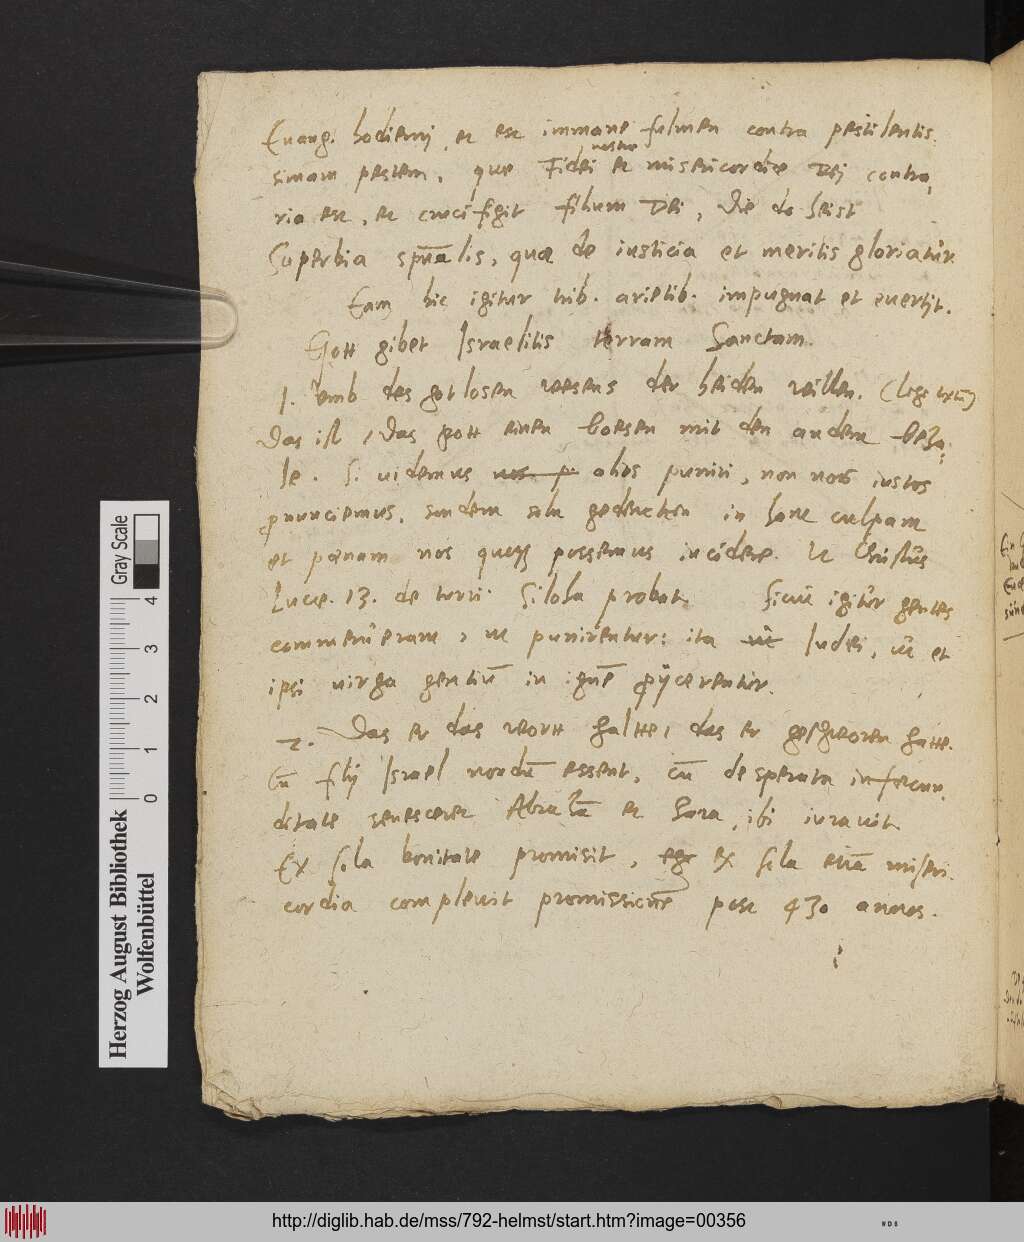 Euang. hodierni, et est immane fulmen contra pestilentis
simam pestem, que Fidei nostre et misericordie Dej contra,
ria est, et crucifigit filium Dei, die do heist
Superbia spualis, quæ de iusticia et meritis gloriatur.
Eam hic igitur trib. arietib. impugnat et euertit.
Gott gibet Israelitis terram Sanctam.
1. Vmb des gotlosen weesens der heiden willen. (lege textu)
Das ist, das gott einen boesen mit den andern beza,
le. Si uidemus alios puniri, non nos iustos
pronunciemus, sondern gedencken in hanc culpam
et pœnam nos quoque possemus incidere. Ut Christus
Lucæ. 13. de turri Siloha probat. Sicut igitur gentes
commeruerant, ut punirentur: ita Iudei, ut et
ipsi uirga gentiu in igne proijcerentur.
2. Das er das wortt haltte, das er geschworen hatte.
Cu filij Israel nondu essent, cu desperata infecun,
ditate senesceret Abraha et Sara, ibi iurauit.
Ex sola bonitate promisit, ex sola etia miseri,
cordia compleuit promissione post 430 annos.
Herzog August Bibliothek
Wolfenbüttel
Gray Scale
0 1 2 3 4
http://diglib.hab.de/mss/792-helmst/start.htm?image=00356